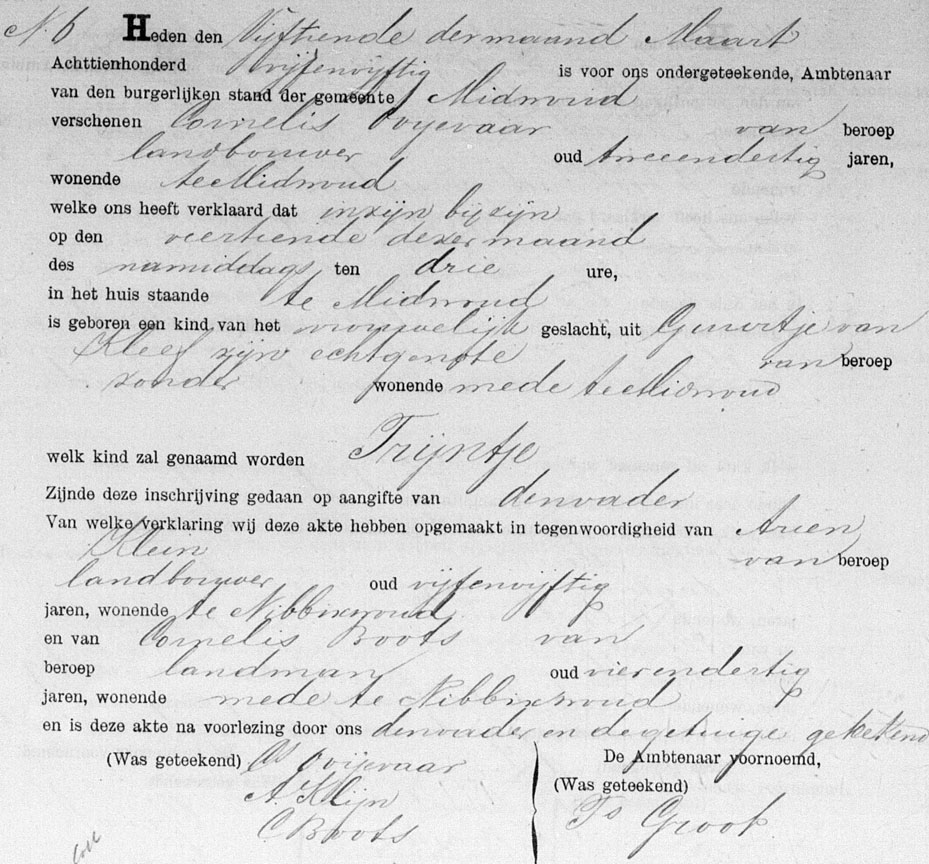 N. 6 Heden den Vijftiende der maand Maart
Achttienhonderd vijfenvijftig is voor ons ondergeteekende, Ambtenaar
van den burgerlijken stand der gemeente Midwoud
verschenen Cornelis Ooijevaar van beroep
landbouwer oud tweeendertig jaren,
wonende te Midwoud
welke ons heeft verklaard dat in zijn bijzijn
op den veertiende dezer maand
des namiddags ten drie ure,
in het huis staande te Midwoud
is geboren een kind van het vrouwelijk geslacht, uit Guurtje van
Kleef zijn echtgenote van beroep
zonder wonende mede te Midwoud
welk kind zal genaamd worden Trijntje
Zijnde deze inschrijving gedaan op aangifte van den vader
Van welke verklaring wij deze akte hebben opgemaakt in tegenwoordigheid van Arien
Klein van beroep
landbouwer oud vijfenvijftig
jaren, wonende te Nibbixwoud
en van Cornelis Boots van
beroep landman oud vierendertig
jaren, wonende mede te Nibbixwoud
en is deze akte na voorlezing door ons den vader en de getuige getekend
(Was geteekend) Ooijevaar De Ambtenaar voornoemd,
A. Klijn (Was geteekend)
C Boots Ps Groot